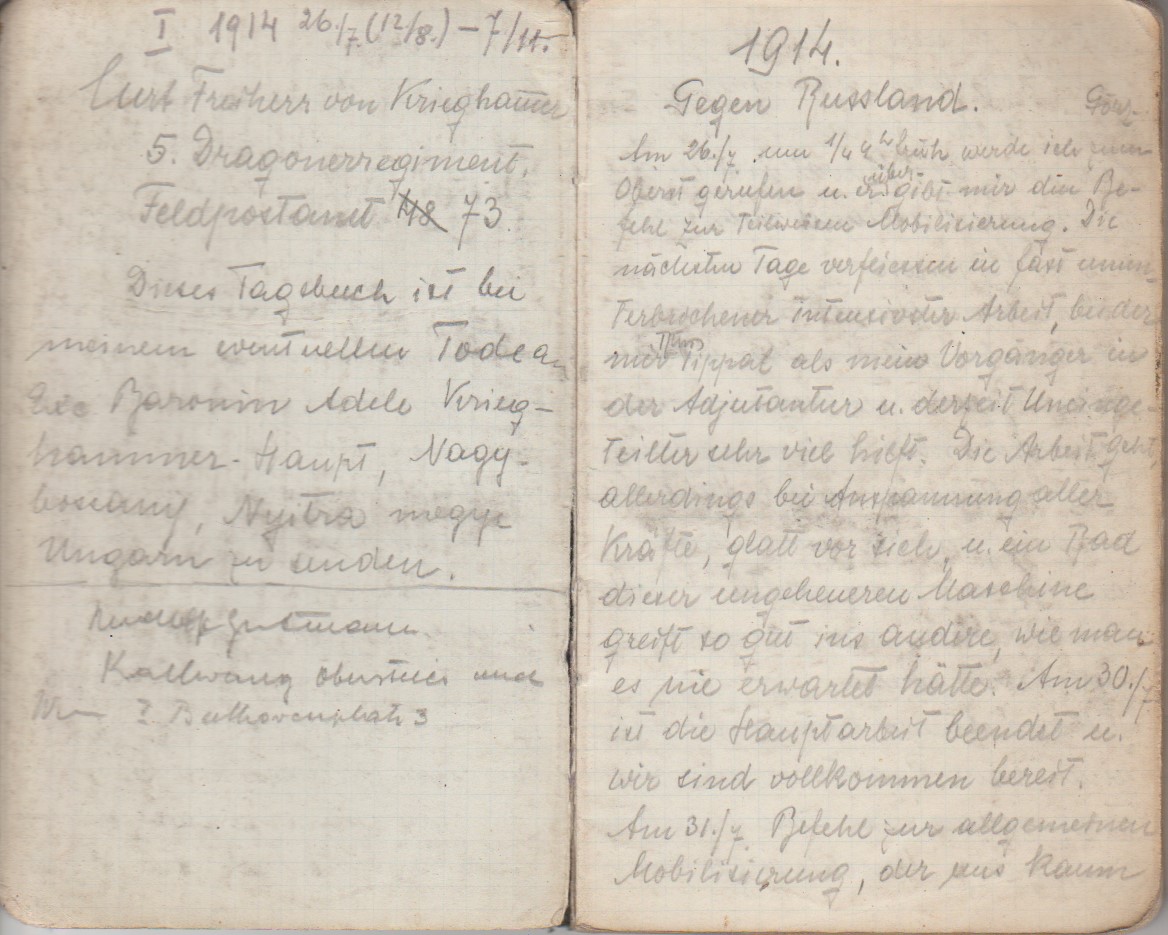 I 1914 26./7. (12/8.) – 7/11.
Curt Freiherr von Krieghammer
5. Dragonerregiment.
Feldpostamt 48 73.
Dieses Tagebuch ist bei
meinem eventuellen Tode an
Exc Baronin Adele Krieg-
hammer-Haupt, Nagy-
bossány, Nyitra megye
Ungarn zu senden.
Rudolf Gutmann
Kallwang Obersteier und
Wien ? Beethovenplatz 3
1914.
Gegen Russland. Görz.
Am 26./7. um 1/4 4 h früh werde ich zum
Oberst gerufen u. er übergibt mir den Be-
fehl zur teilweisen Mobilisierung. Die
nächsten Tage verfliessen in fast unun-
terbrochener intensivster Arbeit, bei der
mir Tippat als mein Vorgänger in
der Adjutantur u. derzeit Uneinge-
teilter sehr viel hilft. Die Arbeit geht,
allerdings bei Anspannung aller
Kräfte, glatt vor sich, u. ein Rad
dieser ungeheueren Maschine
greift so gut ins andere, wie man
es nie erwartet hätte. Am 30./7
ist die Hauptarbeit beendet u.
wir sind vollkommen bereit.
Am 31./7. Befehl zur allgemeinen
Mobilisierung, der uns kaum